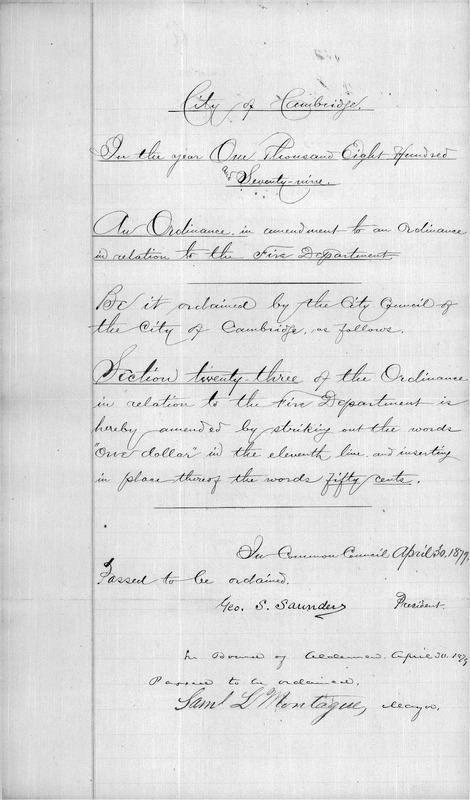 City of Cambridge.
In the year One Thousand Eight Hundred
and
Seventy-nine.
An Ordinance in amendment to an Ordinance
in relation to the Fire Department
Be it ordained by the City Council of
the City of Cambridge, as follows.
Section twenty-three of the Ordinance
in relation to the Fire Department is
hereby amended by striking out the words
"One dollar" in the eleventh line and inserting
in place thereof the words fifty cents.
In Common Council April 30, 1879.
Passed to be ordained.
Geo. S. Saunders President.
In Board of Aldermen April 30. 1879
Passed to be ordained.
Saml L Montague, Mayor.